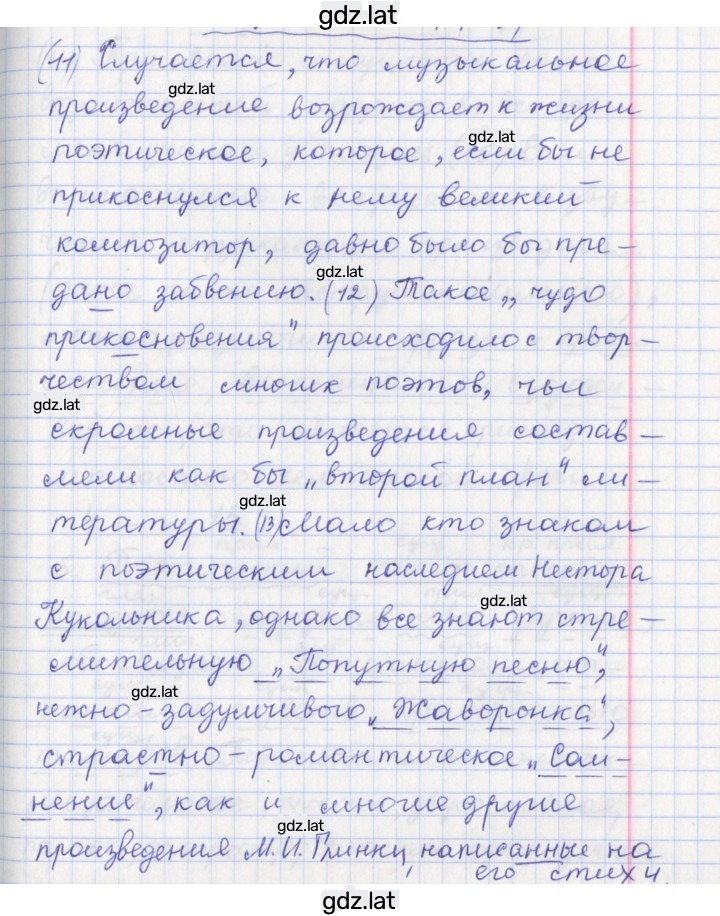 gdz.lat
(11) Случается, что музыкальное
gdz.lat
произведение возрождает к жизни
gdz.lat
поэтическое, которое, если бы не
прикоснулся к нему великий
композитор, давно было бы пре-
gdz.lat
дано забвению. (12) Такое „чудо
прикосновения" происходило с твор-
чеством многих поэтов, чьи
gdz.lat
скромные произведения состав-
ляли как бы „второй план" ли-
gdz.lat
тературы. (13) Мало кто знаком
с поэтическим наследием Нестора
gdz.lat
Кукольника, однако все знают стре-
мительную „Попутную песню",
gdz.lat
нежно-задумчивого „Жаворонка",
страстно-романтическое „Сом-
нение", как и многие другие
gdz.lat
произведения М.И. Глинки, написанные на
его стихи.
gdz.lat